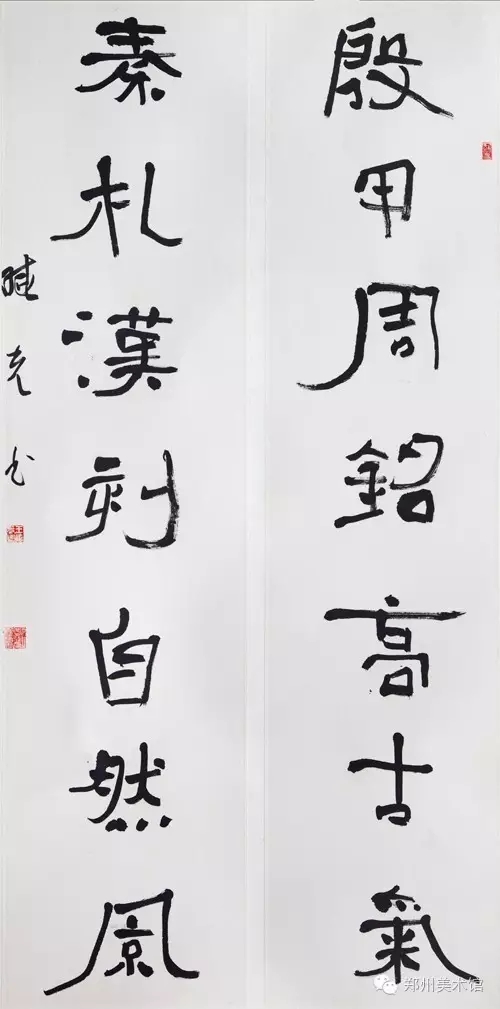 殷甲周銘高古氣
秦札漢刻自然風
郑州美术馆